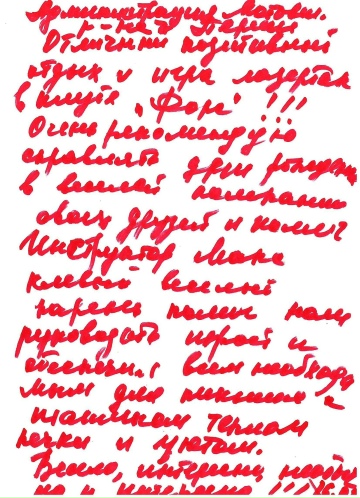 Администрация Мотовил.
р-на г. Перми
Отличный позитивный
отдых и игра лазертаг
в клубе "Форт" !!!
Очень рекомендую
справлять дни рождения
в веселой компании
своих друзей и коллег
Инструктор Ваня
клевый веселый
парень помог нам
руководить игрой и
обеспечил всем необходи
мым для пикника с
шашлыком теплом
печки и уютом.
Весело, интересно,
но и